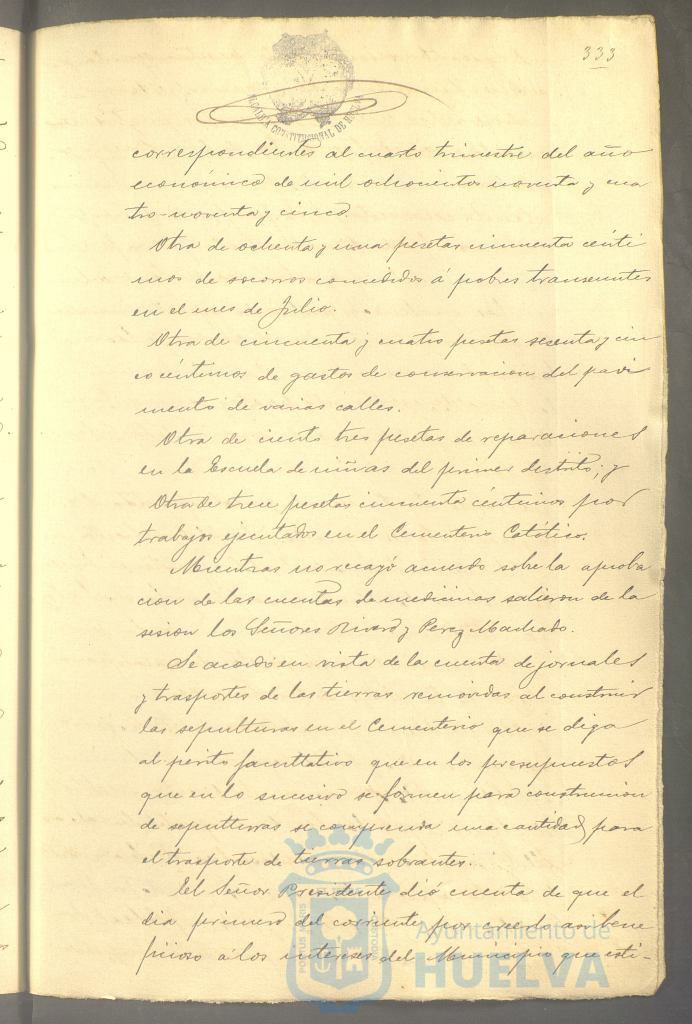 333
ALCALDIA CONSTITUCIONAL DE HUELVA
correspondientes al cuarto trimestre del año
económico de mil ochocientos noventa y cua
tro-noventa y cinco.
Otra de ochenta y una pesetas cincuenta cénti
mos de socorros concedidos á pobres transeuntes
en el mes de Julio.
Otra de cincuenta y cuatro pesetas sesenta y cin
co céntimos de gastos de conservacion del pavi
mento de varias calles.
Otra de ciento tres pesetas de reparaciones
en la Escuela de niñas del primer distrito; y
Otra de trece pesetas cincuenta céntimos por
trabajos ejecutados en el Cementerio Católico.
Mientras no recayó acuerdo sobre la aproba
cion de las cuentas de medicinas salieron de la
sesion los Señores Rivero y Perez Machado.
Se acordó en vista de la cuenta de jornales
y trasportes de las tierras removidas al construir
las sepulturas en el Cementerio que se diga
al perito facultativo que en los presupuestos
que en lo sucesivo se formen para construccion
de sepulturas se comprenda una cantidad para
el trasporte de tierras sobrantes.
El Señor Presidente dió cuenta de que el
dia primero del corriente por creerlo bene
ficioso á los intereses del Municipio que esti-
PORTUS MARIS ET TERRAE CUSTODIA
Ayuntamiento de
HUELVA